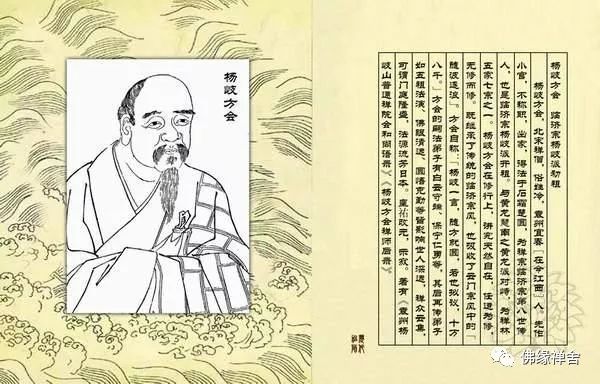 杨岐方会
杨岐方会 临济宗杨岐派初祖
杨岐方会,北宋禅僧,俗姓冷,袁州宜春「在今江西」人。先作
小官,不称职,出家,得法于石霜楚圆,为禅宗临济宗第八世传
人,也是临济宗杨岐派开祖。与黄龙慧南之黄龙派对峙,为禅林
五家七宗之一。杨岐方会在修行上,讲究天然自在,任运为修,
无修而修。既继承了传统的临济宗风,也吸收了云门宗风中的「
随波逐浪」。方会自称:「杨岐一言,随方就圆,若也拟议,十万
八千。」方会的嗣法弟子有白云守端、保宁仁勇等,其后再传弟子
如五祖法演、佛眼清远、圆悟克勤等皆影响世人深远,禅众云集,
可谓门庭隆盛,法源流芳日本。皇祐改元,示寂。著有《袁州杨
岐山普通禅院会和尚语录》《杨岐方会禅师后录》
佛缘禅舍